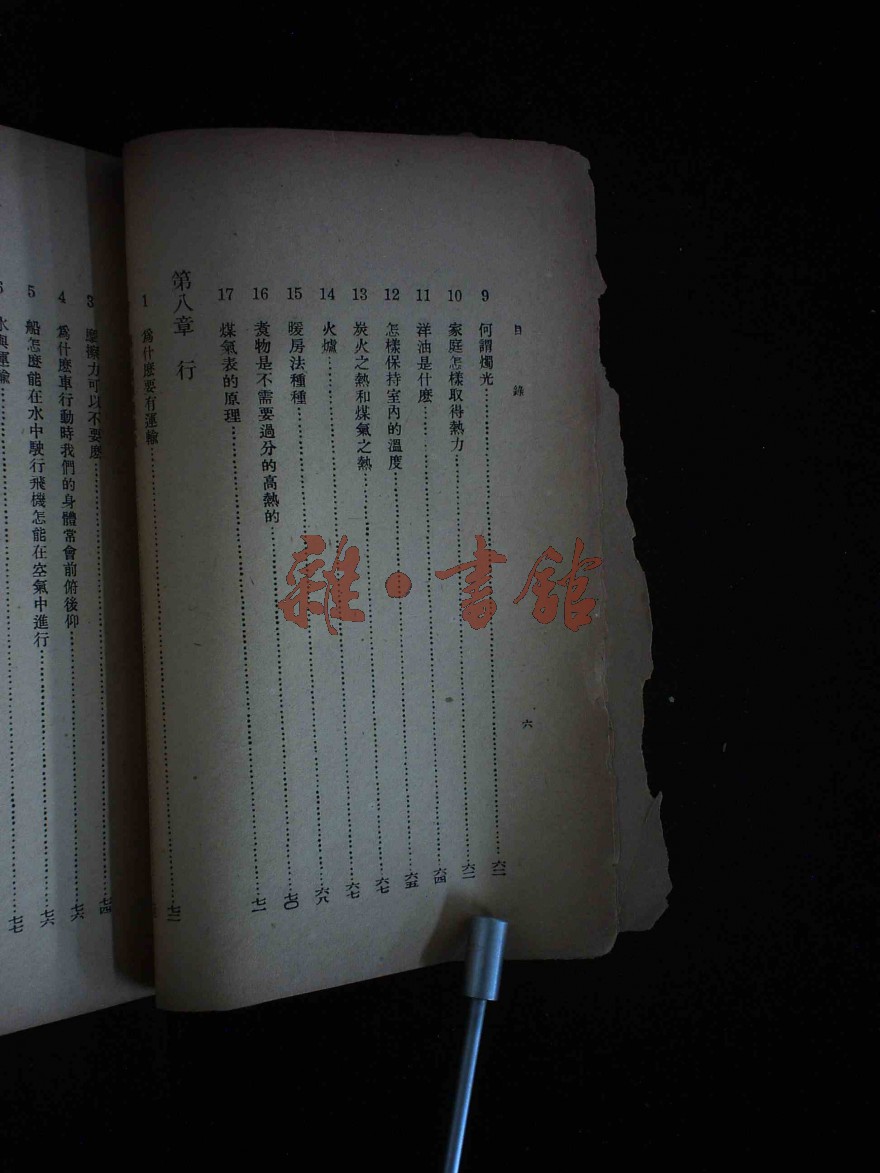 目錄
9 何謂燭光……六二
10 家庭怎樣取得熱力……六二
11 洋油是什麼……六四
12 怎樣保持室內的溫度……六五
13 炭火之熱和煤氣之熱……六七
14 火爐……六七
15 暖房法種種……六八
16 煑物是不需要過分的高熱的……七〇
17 煤氣表的原理……七一
第八章 行
1 爲什麼要有運輸……七二
3 摩擦力可以不要麼……七四
4 爲什麼車行動時我們的身體常會前俯後仰……七六
5 船怎麼能在水中駛行飛機怎能在空氣中進行……七六
6 水與運輸……七七
六
雜·書館